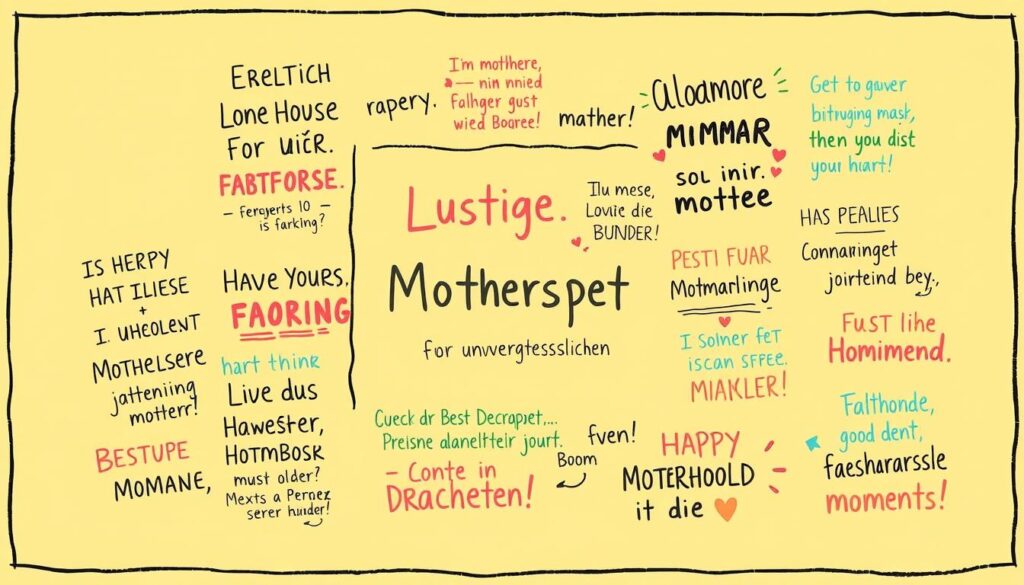 ERELTICH
LONE HOUSE
FOR UIČR.
FABTFORSE.
– Ferqyerts 10 –
is farking?
rapery.
I'm motlhere,
nin nnied
Fallhger gust
wied Boaree!
mather!
aloamore
MIMMAR
SOL INIr.
mottee
Get to gaver
bitruging mask,
then you dist
your hıart!
Lustige.
Ilu mese,
Lovie die
BUNDER!
Motherspet
for unvergtesslichen
HAS PEALIES
Connaringet
jorteind bey.
IS HERPY
HAT ILIESE
+
I. UHEOLENT
MOTHELSERE
jatteniing
motterr!
BESTUPE
MOMANE,
HAVE YOURS.
FAORING
hart think
Live dus
Hawester,
HOTMBOSK
must older?
Mexts a Pernez
serer hunder!
PESTI FUAR
Motmarlinge
I Solner FET
iscan SFFEE.
MIAKLER!
FUST lihe
Homimend.
Cueck dr Best Decrapjet,...
Preisne alanelfteir jourt.
– Conte in
DRACHETEN!
fven!
Boom
HAPPY
MOTERHOOLD
it die
Falthonde,
good dent,
faeshararssle
moments!